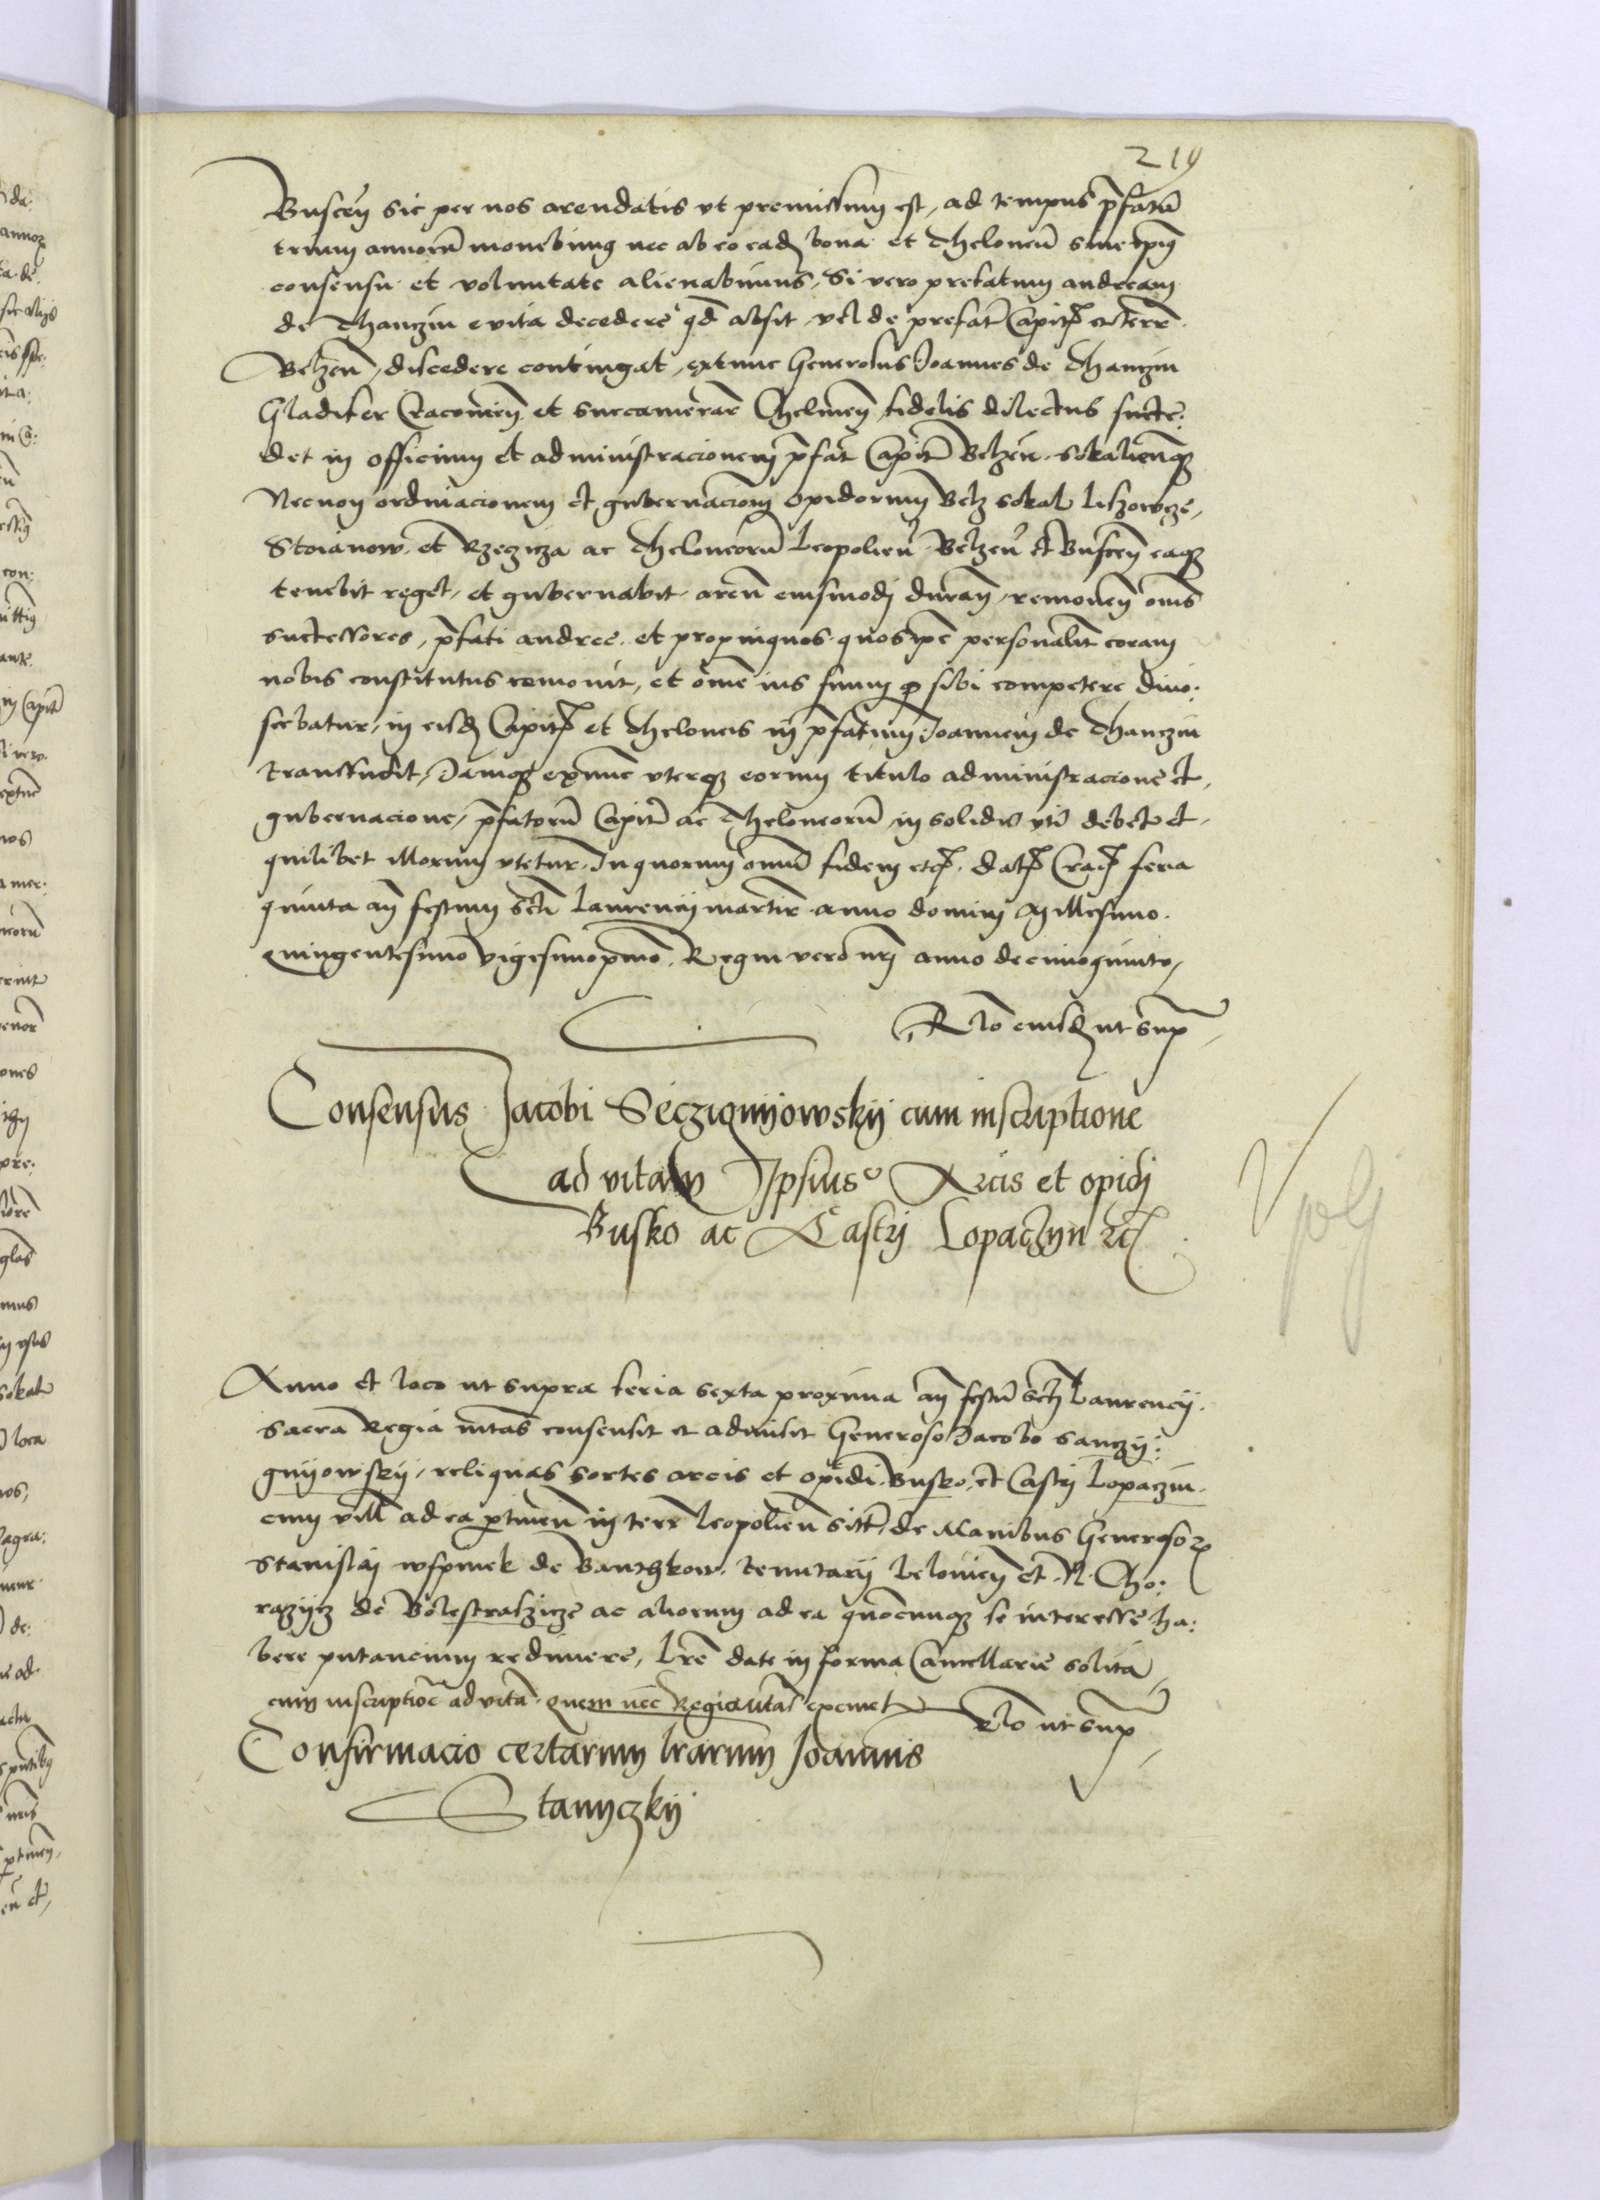 219
Buscen sic per nos arendatis ut premissum est, ad tempus p̄fatū
trium annorū monebimus nec ab eo eadē bona et Theloneū sine ipius
consensu et voluntate alienabimus, Si vero prefatum andream
de Thanczin e vita decedere qd absit vel de prefat Capit et terre
Belzen, discedere contingat, extunc Generosus Joannes de Thanczin
Gladifer Cracovien et succamerar Chelmen fidelis dilectus succe:
det in officium et administracionem p̄fat Capit Belzen Sokalienqꝫ
Necnon ordinacionem et gubernaciom opidorum Belz Sokal
Stoianow et Rzeczicza ac Theloneorū Leopolien Belzen et Buscen eaqꝫ
tenebit reget, et gubernabit, aren eiusmodi duran, remoueñ oms
successores, p̄fati andree et propinquos quos ipē personalit coram
nobis constitutus remouit, et ome ius suum qđ sibi competere dino:
scebatur, in eisđ Capit et Theloneis in p̄fatum Joannem de Thanczin
transfudit, Jamqꝫ exnunc uterqꝫ eorum titulo administracione et
gubernacione, p̄fatorū Capit ac Theloneorū in solidū uti debet et
quilibet illorum utetur. In quorum omū fidem etc. dat Crac feria
quinta añ festum scti Laurencij martir anno domini Millesimo
quingentesimo vigesimopmo, Regni vero nri anno decimoquinto,
Rlo eiusđ ut sup
Consensus Jacobi Secziqnijowskij cum inscriptione
ad vitam Ipsius Arcis et opidj
Busko ac Castrj Lopaczyn etc
Anno et loco ut supra feria sexta proxima añ festū scti Laurencij.
Sacra Regia mtas consensit et admisit Generoso Jacobo Sanczy:
gnijowskij, reliquas sortes arcis et opidi Busko, et Castrj Lopaczin
cum vill ad ea ptinen in terr Leopolien sitt, de Manibus Generosoꝝ
Stanislaj de Banczkow tenutarij et N. Cho:
razycz de Bolestraszicze ac aliorum ad ea quocunqꝫ se interesse ha:
bere putancium redimere, Lrē date in forma Cancellarie solita
cum inscriptiōe ad vitā quem nec Regia mtas exemet
Rlo ut sup
Confirmacio certarum lrarum Joannis
Stanyczkij